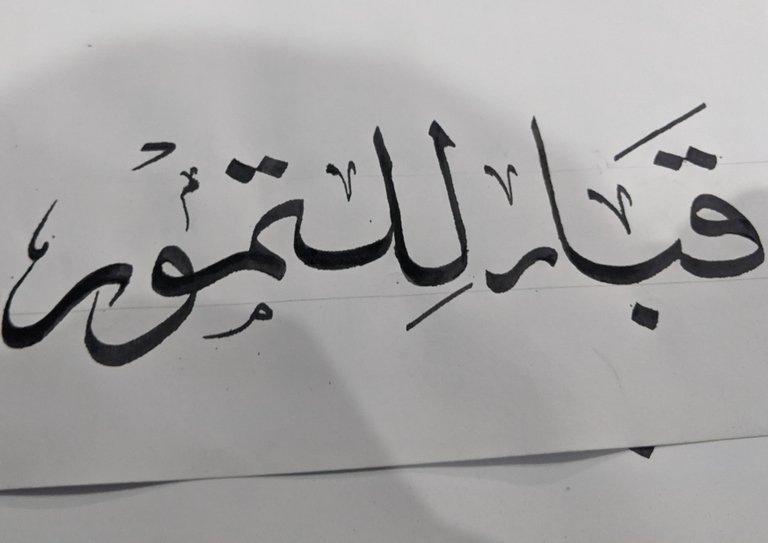 قَبار لِلتمور